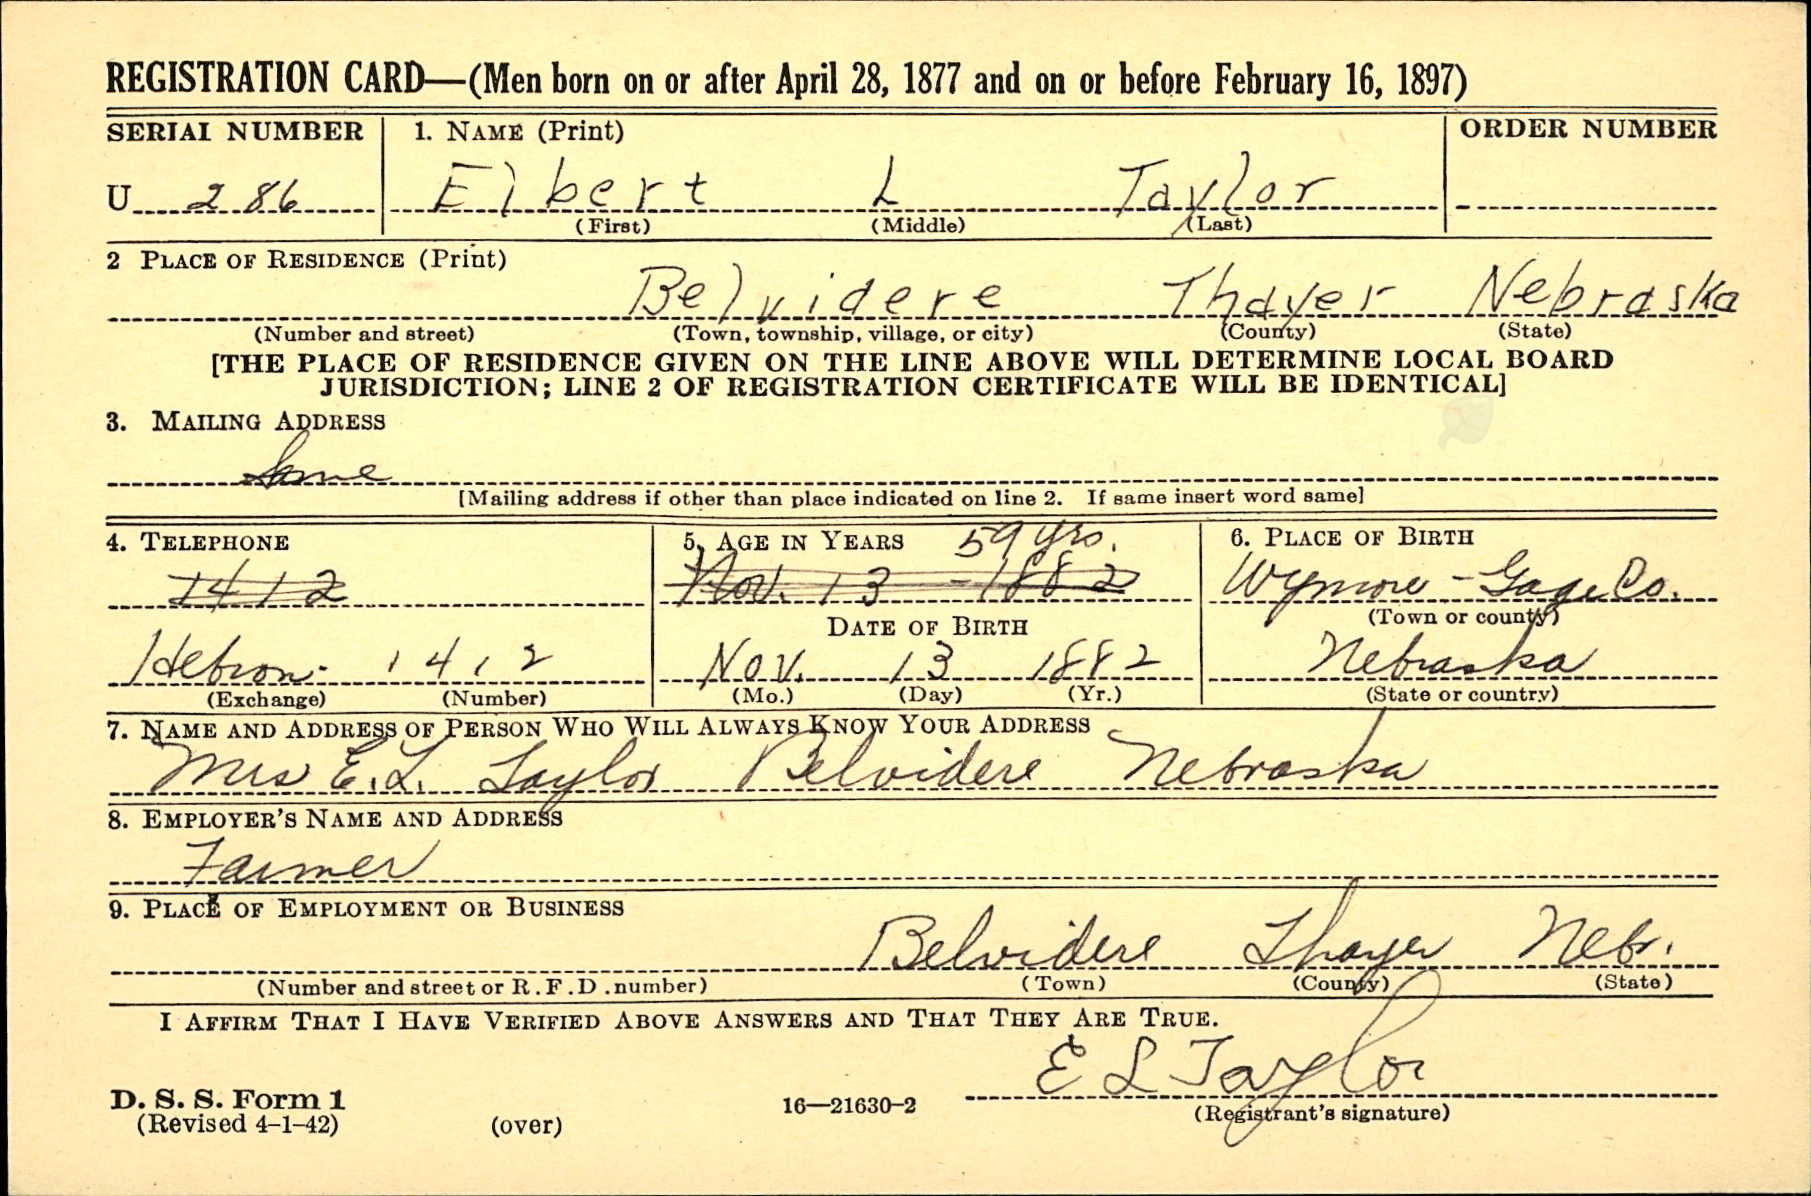 REGISTRATION CARD—(Men born on or after April 28, 1877 and on or before February 16, 1897)
SERIAL NUMBER 1. NAME (Print) ORDER NUMBER
U 286 Elbert L Taylor
(First) (Middle) (Last)
2 PLACE OF RESIDENCE (Print)
Belvidere Thayer Nebraska
(Number and street) (Town, township, village, or city) (County) (State)
[THE PLACE OF RESIDENCE GIVEN ON THE LINE ABOVE WILL DETERMINE LOCAL BOARD
JURISDICTION; LINE 2 OF REGISTRATION CERTIFICATE WILL BE IDENTICAL]
3. MAILING ADDRESS
Same
[Mailing address if other than place indicated on line 2. If same insert word same]
4. TELEPHONE 5. AGE IN YEARS 59 yrs. 6. PLACE OF BIRTH
1412 Nov. 13 - 1882 Wymore - Gage Co.
(Town or county)
DATE OF BIRTH
Hebron - 1412 Nov. 13 1882 Nebraska
(Exchange) (Number) (Mo.) (Day) (Yr.) (State or country)
7. NAME AND ADDRESS OF PERSON WHO WILL ALWAYS KNOW YOUR ADDRESS
Mrs E.L. Taylor Belvidere Nebraska
8. EMPLOYER'S NAME AND ADDRESS
Farmer
9. PLACE OF EMPLOYMENT OR BUSINESS
Belvidere Thayer Nebr.
(Number and street or R.F.D. number) (Town) (County) (State)
I AFFIRM THAT I HAVE VERIFIED ABOVE ANSWERS AND THAT THEY ARE TRUE.
E L Taylor
D. S. S. Form 1
(Revised 4-1-42) (over) 16—21630-2 (Registrant's signature)